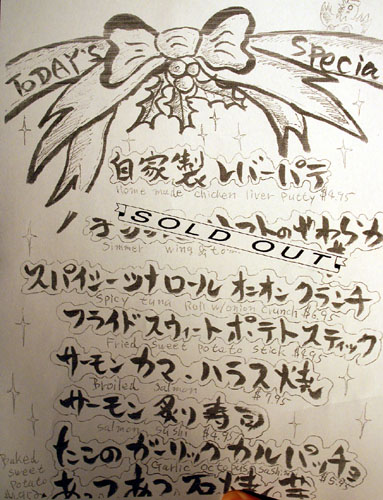 TODAY'S Specia
自家製 レバーパテ
Home made chicken liver putty $4.95
SOLD OUT
Simmer wing &
スパイシーツナロール オニオンクランチ
Spicy tuna Roll w/onion crunch $6.95
フライドスウィートポテトスティック
Fried sweet potato stick $4.95
サーモンカマ・ハラス焼
Broiled Salmon $7.95
サーモン炙り寿司
salmon sushi $4.95
たこのガーリックカルパッチョ
Garlic octopus sashimi $5.95
Baked sweet potato
あっつあつ石焼芋